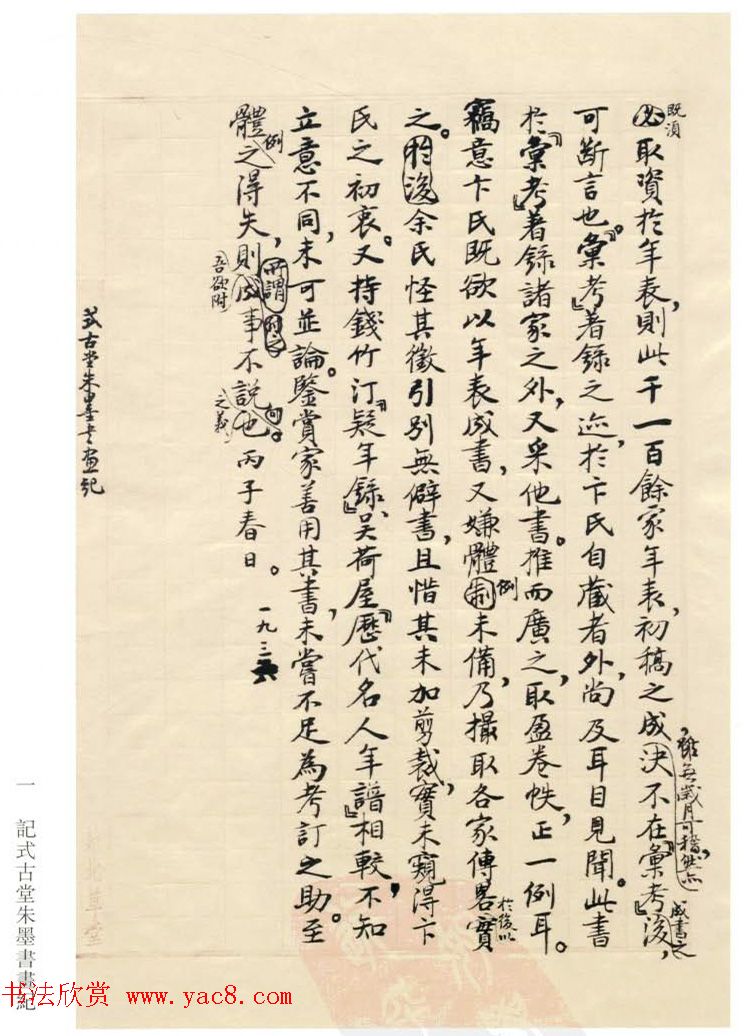 既須
必取資於年表，則此千一百餘家年表，初稿之成決不在『彙考』後，
雖無歲月可稽，然亦
成書之
可断言也。『彙考』著錄之迹，於卞氏自藏者外，尚及耳目見聞。此書
於『彙考』著錄諸家之外，又采他書。推而廣之，取盈卷帙，正一例耳。
竊意卞氏既欲以年表成書，又嫌體制未備，乃撮取各家傳畧實
例
於後以
之。於後余氏怪其徵引別無僻書，且惜其未加剪裁，實未窺得卞
氏之初衷。又持錢竹汀『疑年錄』、吳荷屋『歷代名人年譜』相較，不知
立意不同，未可並論。鑒賞家善用其書，未嘗不足為考訂之助。至
體之得失，則成事不説也丙子春日。
例
所謂
吾欲附
之義
一九三六
式古堂朱墨書畫紀
一 記式古堂朱墨書畫紀
书法欣赏 www.yac8.com